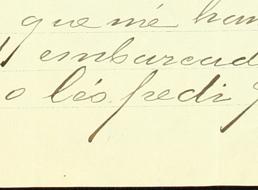 que mé han
embarcad
o lés pedi